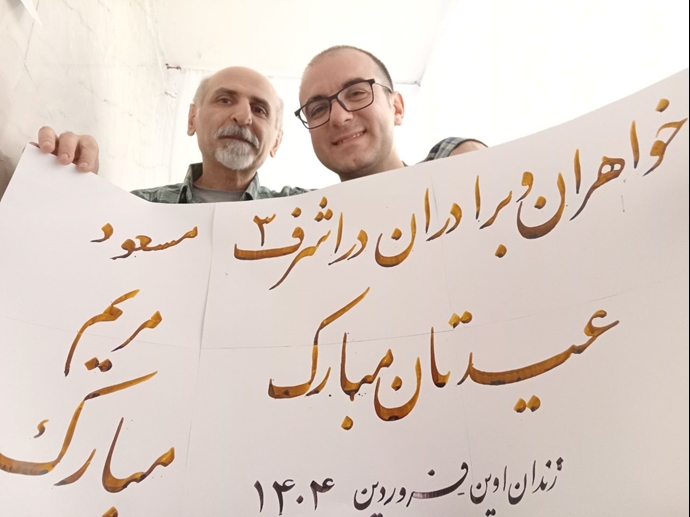 خواهران و برادران در اشرف ۳
عیدتان مبارک
زندان اوین فروردین ۱۴۰۴
مسعود
مریم
مبارک